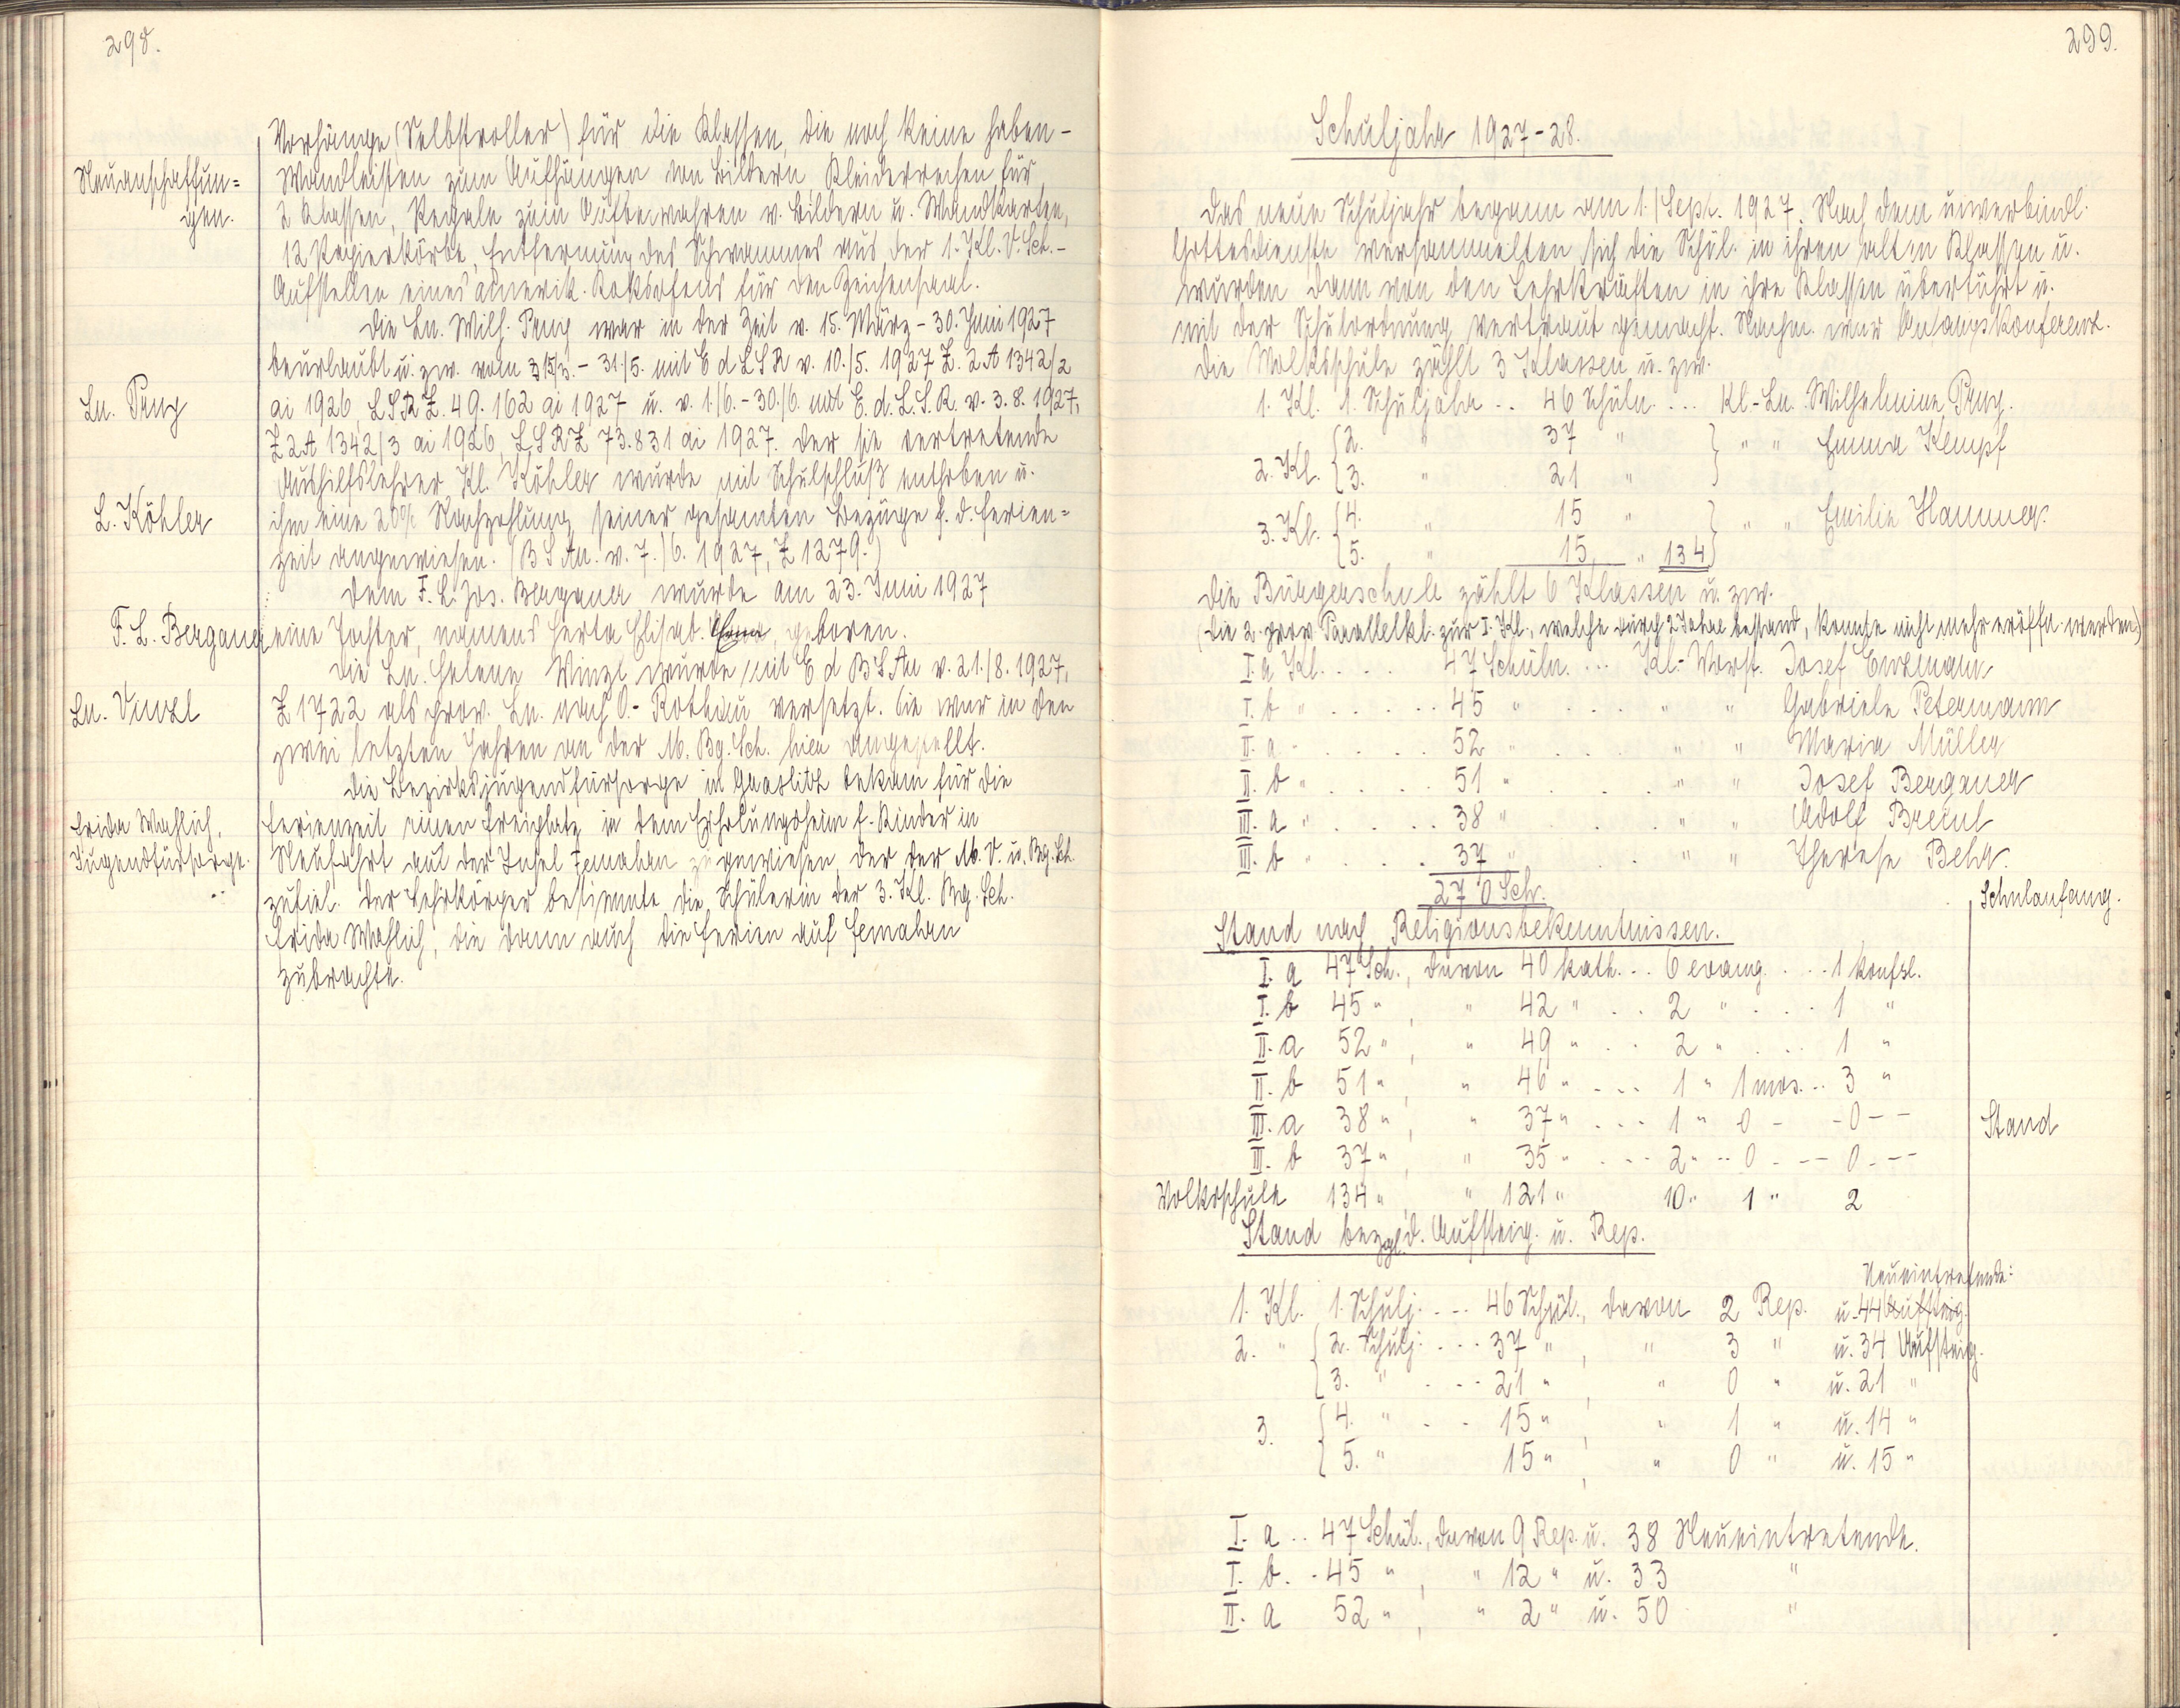 298.
Vorhänge (Selbstroller) für die Klassen, die noch keine haben -
Neuanschaffun=
gen.
Wandleisten zum Aufhängen von Bildern, Kleiderrechen für
2 Klassen, Regale zum Aufbewahren v. Bildern u. Wandkarten,
12 Papierkörbe, Entfernung des Schwammes aus der 1. Kl. V. Sch. -
Aufstellen eines amerik. Koksofens für den Zeichensaal.
Die Ln. Wilh. Prug war in der Zeit v. 15. März - 30. Juni 1927
beurlaubt u. zw. vom 15/3. - 31./5. mit E d LSR v. 10./5. 1927 Z. 2A 1342/2
Ln. Prug
ai 1926, LSR Z. 49.162 ai 1927 u. v. 1./6. - 30./6. mit E. d. L.S.R. v. 3.8.1927,
Z 2A 1342/3 ai 1926, LSRZ 73.831 ai 1927. Der sie vertretende
Aushilfslehrer Kl. Köhler wurde mit Schulschluß enthoben u.
L. Köhler
ihm eine 20% Nachzahlung seiner gesamten Bezüge f. d. Ferien=
zeit angewiesen. (BSAn. v. 7./6. 1927, Z 1279.)
Dem F. L. Jos. Bergauer wurde am 23. Juni 1927
F. L. Bergauer
eine Tochter, namens Herta Elisab. geboren.
Die Ln. Helene Vinzl wurde mit E d BSAu v. 21./8. 1927,
Ln. Vinzl
Z 1722 als prov. Ln. nach O.- Rothau versetzt. Sie war in den
zwei letzten Jahren an der M. Bg. Sch. hier angestellt.
Die Bezirksjugendfürsorge in Graslitz bekam für die
Frida Waslich,
Jugendfürsorge.
Ferienzeit einen Freiplatz in dem Erholungsheim f. Kinder in
Neufahrt auf der Insel Femahrn zugewiesen, der der M. V. u. Bg. Sch.
zufiel. Der Lehrkörper bestimmte die Schülerin der 3. Kl. Bg. Sch.
Frida Waslich, die dann auch die Ferien auf Femahrn
zubrachte.
299.
Schuljahr 1927-28.
Das neue Schuljahr begann am 1./Sept. 1927. Nach dem unverbindl.
Gottesdienste versammelten sich die Schül. in ihren alten Klassen u.
wurden dann von den Lehrkräften in ihre Klassen überführt u.
mit der Schulordnung vertraut gemacht. Nachm. war Anfangskonferenz.
Die Volksschule zählt 3 Klassen u. zw.
1. Kl. 1. Schuljahr .. 46 Schüln. ... Kl.-Ln. Wilhelmine Prug.
2. Kl. { 2. " 37 " } " " Emma Kempf
3. " 21 "
3. Kl. { 4. " 15 " } " " Emilie Hammer.
5. " 15 " 134
Die Bürgerschule zählt 6 Klassen u. zw.
(Die 2. prov. Parallelkl. zur I. Kl., welche durch 2 Jahre bestand, konnte nicht mehr eröffn. werden)
I. a Kl. .... 47 Schüln. ... Kl.-Vorst. Josef Enzmann
I. b " ..... 45 " .... " " Gabriele Petermann
II. a " ..... 52 " .... " " Maria Müller
II. b " ..... 51 " .... " " Josef Bergauer
III. a " ..... 38 " .... " " Adolf Breinl
III. b " .... 37 " .... " " Therese Behr.
270 Sch.
Schulanfang.
Stand nach Religionsbekenntnissen.
I. a 47 Sch., davon 40 kath. .. 6 evang. ... 1 konfsl.
I. b 45 " , " 42 " .. 2 " ... 1 "
II. a 52 " , " 49 " .. 2 " ... 1 "
II. b 51 " , " 46 " ... 1 " 1 mos. .. 3 "
III. a 38 " , " 37 " ... 1 " 0 - - 0 - -
Stand
III. b 37 " , " 35 " ... 2 " .. 0 - - 0 - -
Volksschule 134 " , " 121 " 10 " 1 " 2
Stand bezgl. d. Aufsteig. u. Rep.
Neueintretende:
1. Kl. 1. Schulj. ... 46 Schül., davon 2 Rep. u. 44 Aufsteig.
2. " { 2. Schulj. ... 37 " , " 3 " u. 34 Aufsteig.
3. " ... 21 " , " 0 " u. 21 "
3. { 4. " .. 15 " , " 1 " u. 14 "
5. " 15 " , " 0 " u. 15 "
I. a .. 47 Schül., davon 9 Rep. u. 38 Neueintretende.
I. b. . 45 " , " 12 " u. 33 "
II. a 52 " , " 2 " u. 50 "